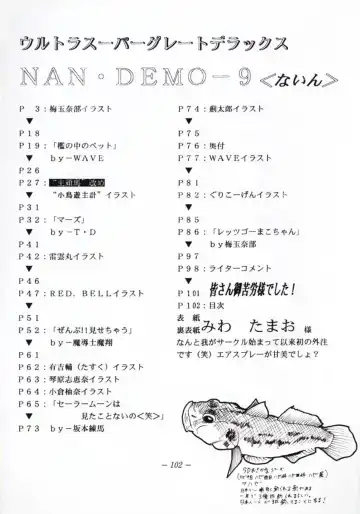 ウルトラスーパーグレートデラックス
NAN・DEMO－9＜ないん＞
P 3：梅玉奈部イラスト
▼
P18
P19：「檻の中のペット」
▼ by－WAVE
P26
P27："主頭馬"改め
▼ "小鳥遊主計"イラスト
P31
P32：「マーズ」
▼ by－T・D
P41
P42：雷雲丸イラスト
▼
P46
P47：RED．BELLイラスト
▼
P51
P52：「ぜんぶ!!見せちゃう」
▼ by－魔導士魔翔
P61
P62：有吉輔（たすく）イラスト
P63：琴原志恵奈イラスト
P64：小倉柚奈イラスト
P65：「セーラームーンは
▼ 見たことないの＜笑＞」
P73 by－坂本練馬
P74：戯太郎イラスト
▼
P75
P76：奥付
P77：WAVEイラスト
▼
P81
P82：ぐりこーげんイラスト
▼
P85
P86：「レッツゴーまこちゃん」
▼ by梅玉奈部
P97
P98：ライターコメント
▼
P101 皆さん御苦労様でした！
P102：目次
表 紙
裏表紙 みわ たまお 様
なんと我がサークル始まって以来初の外注
です（笑）エアスプレーが甘美でしょ？
－102－